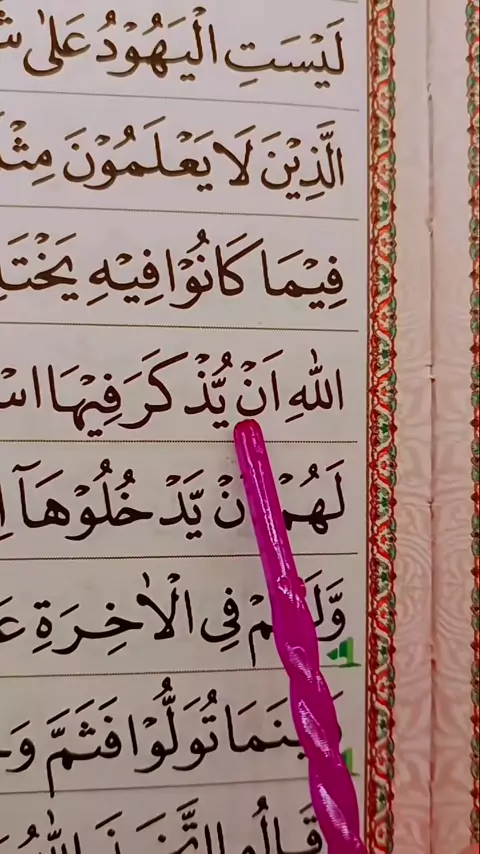 لَيْسَتِ الْيَهُوْدُ عَلٰى
الَّذِيْنَ لَا يَعْلَمُوْنَ
فِيْمَا كَانُوْا فِيْهِ
اللّٰهِ اَنْ يُّذْكَرَ فِيْهَا
لَهُمْ اَنْ يَّدْخُلُوْهَآ
وَّلَهُمْ فِى الْاٰخِرَةِ
تُوَلُّوْا فَثَمَّ